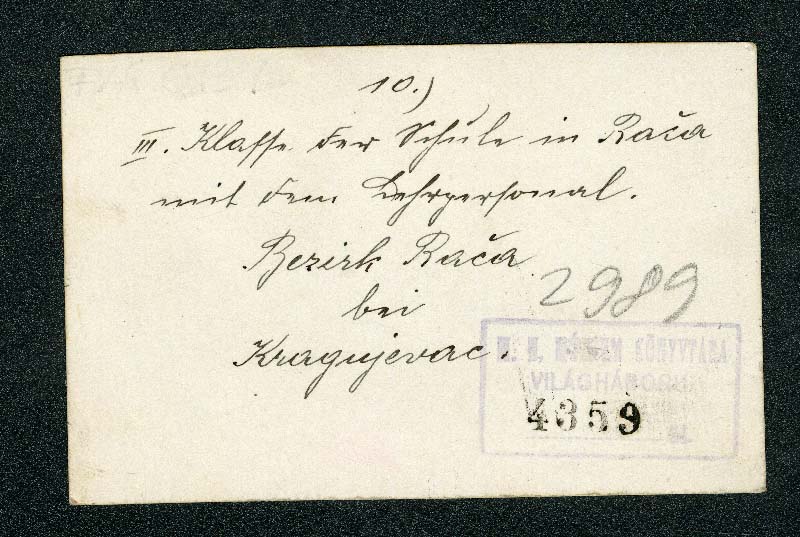 10.)
III. Klasse der Schule in Rača
mit dem Lehrpersonal.
Bezirk Rača
bei
Kragujevac.
2989
M. N. MÚZEUM KÖNYVTÁRA
VILÁGHÁBORÚ
4359